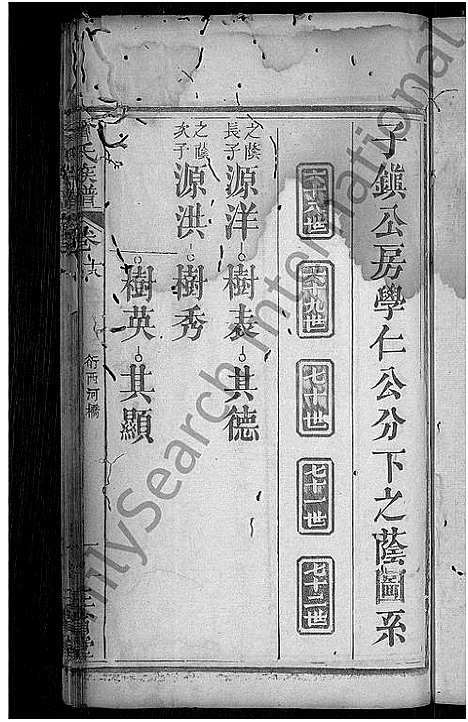 子鎮公房學仁公分下之蔭圖系
六十八世 六十九世 七十世 七十一世 七十二世
之蔭長子 源洋 樹表 其德
之蔭次子 源洪 樹秀
樹英 其顯
氏族譜 卷 衍西河橋
FamilySearch International